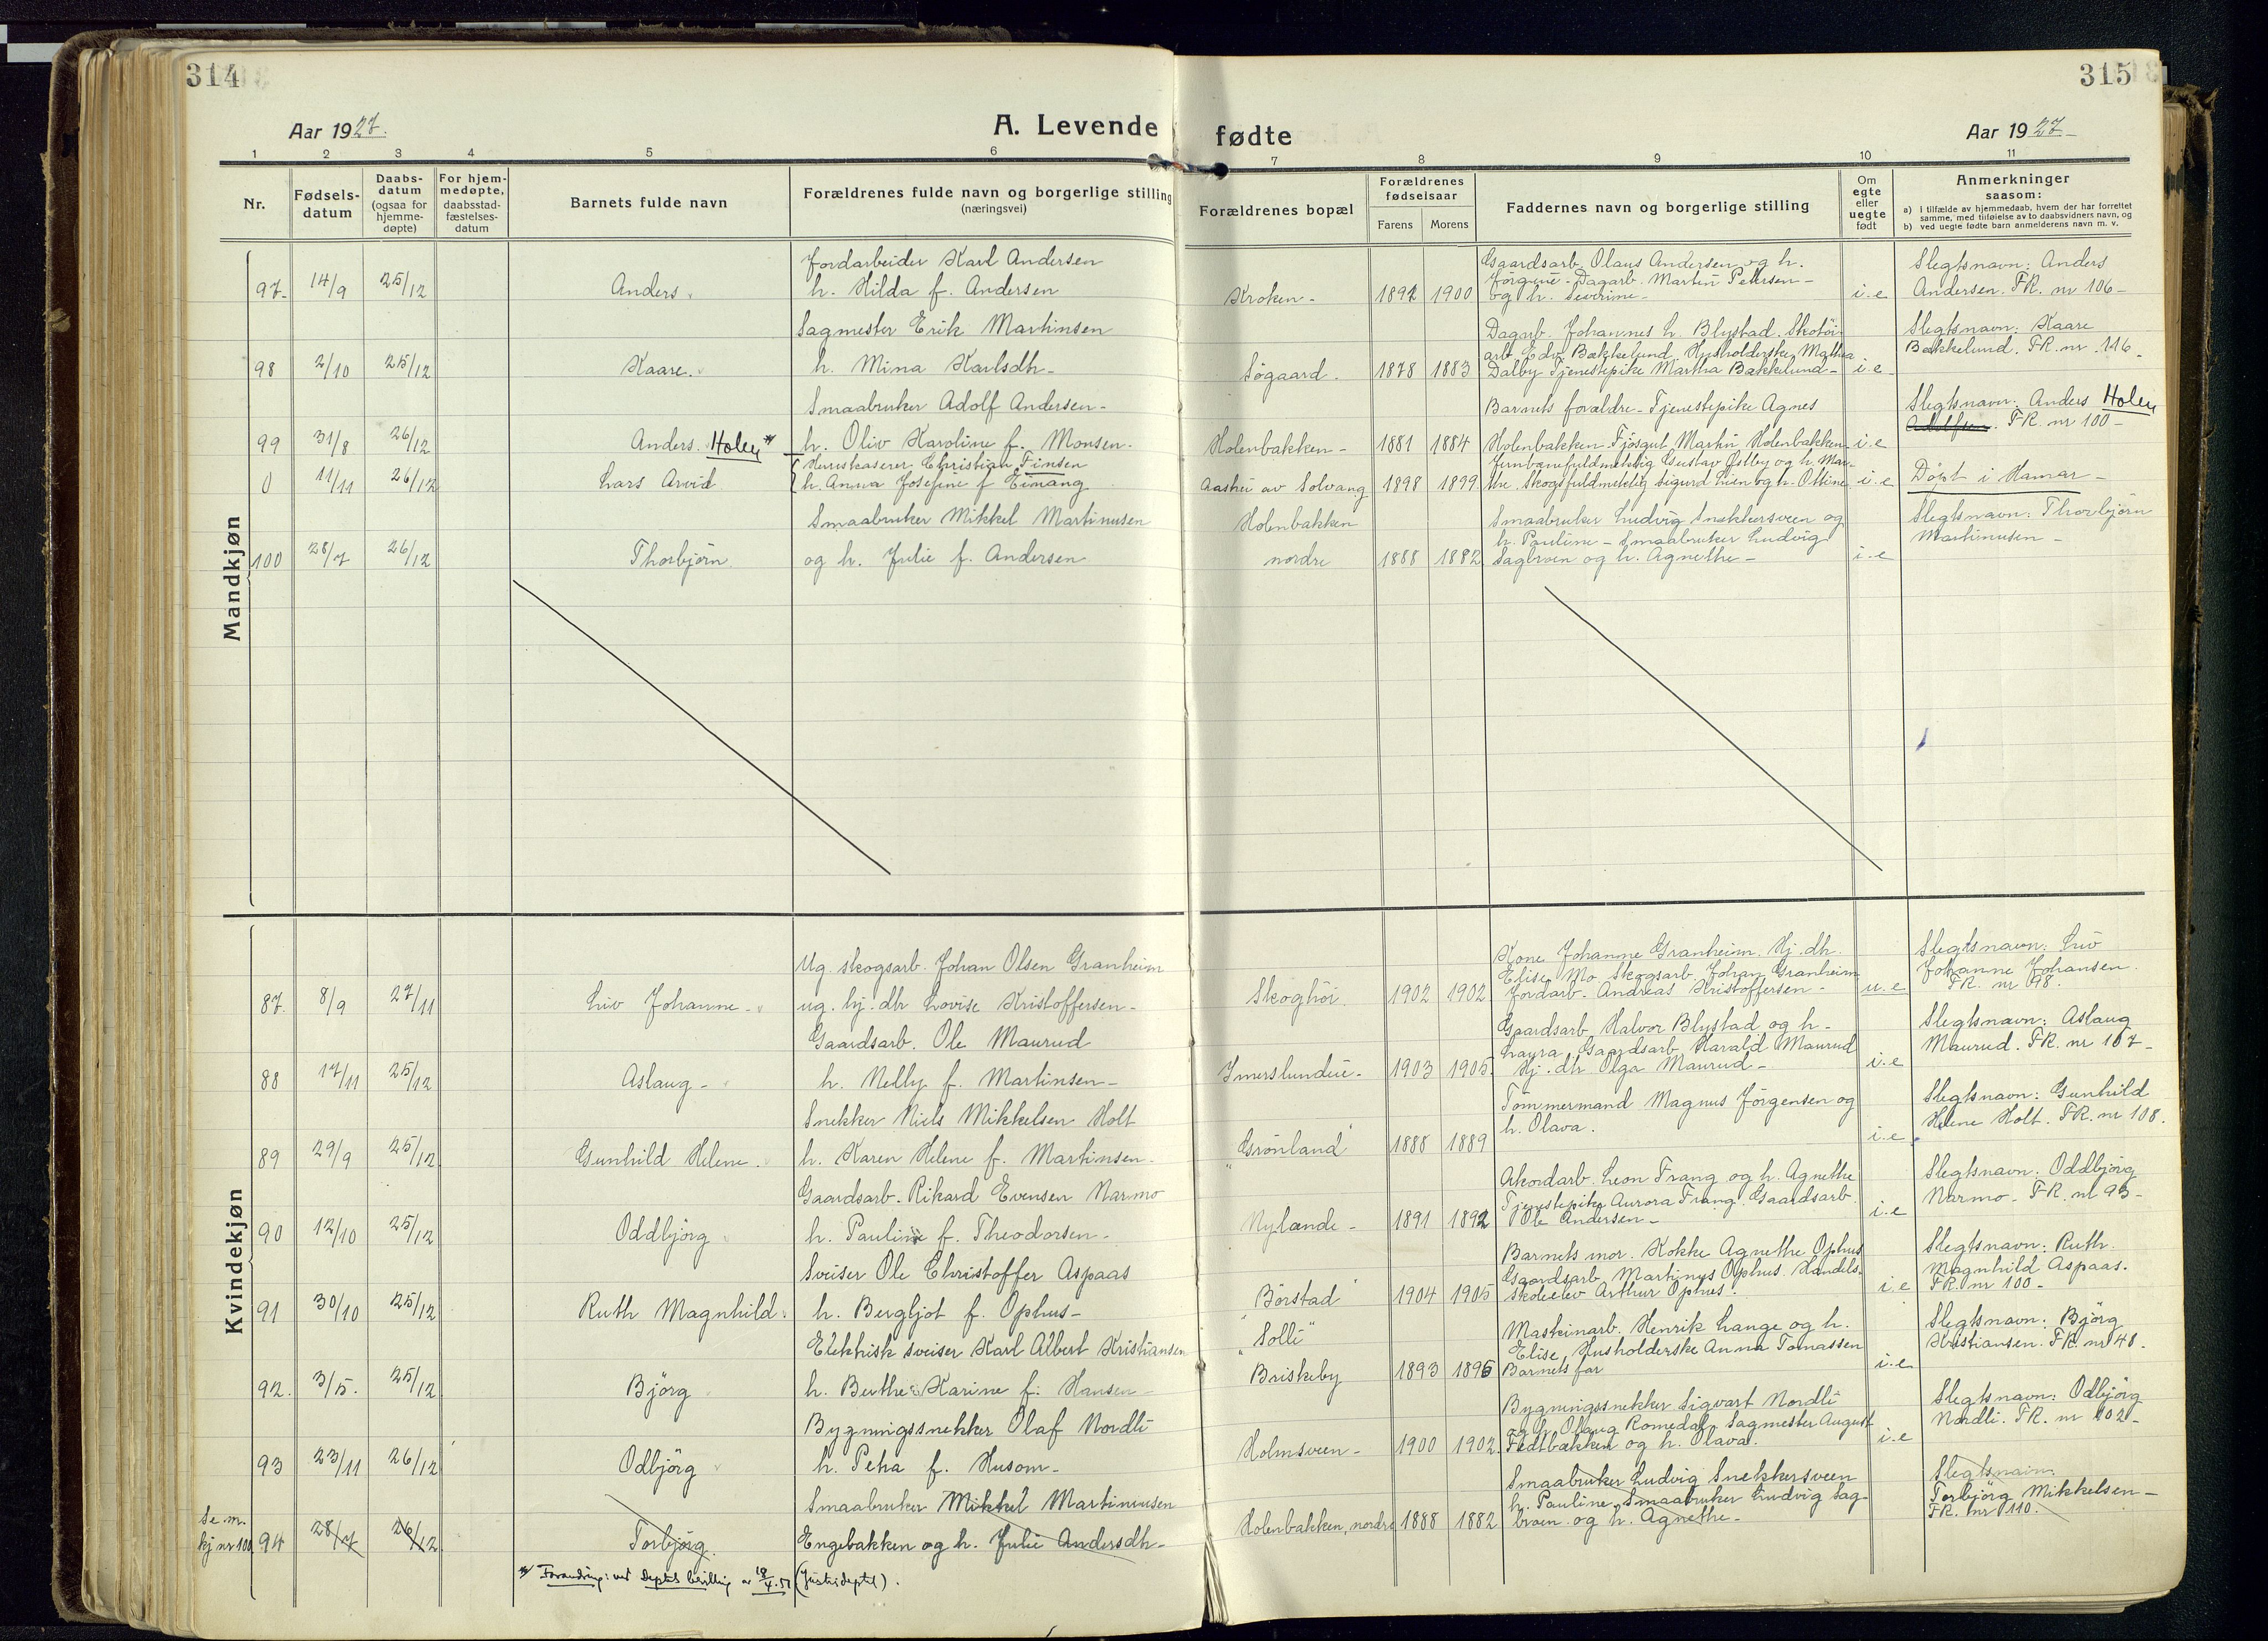 314
Aar 1927.
A. Levende
1 2 3 4 5 6
Nr.
Fødsels-
datum
Daabs-
datum
(ogsaa for
hjemme-
døpte)
For hjem-
medøpte,
daabsstad-
fæstelses-
datum
Barnets fulde navn
Forældrenes fulde navn og borgerlige stilling
(næringsvei)
Mandkjøn
Jordarbeider Karl Andersen
97. 14/9 25/12 Anders h. Hilda f. Andersen
Sagmester Erik Martinsen
98 2/10 25/12 Kaare. h. Mina Karlsdh-
Smaabruker Adolf Andersen-
99 31/8 26/12 Anders. Holen * h. Oliv Karoline f. Monsen.
Christian Finsen
0 11/11 26/12 Lars Arvid h. Anna Josefine f
Smaabruker Mikkel Martinusen
100 28/7 26/12 Thorbjörn og h. Julie f. Andersen
Kvindekjøn
Ug. skogsarb. Johan Olsen Granheim
87. 8/9 27/11 Liv Johanne- ug. hj. dtr Lovise Kristoffersen-
Gaardsarb. Ole Maurud
88 17/11 25/12 Aslaug- h. Nelly f. Martinsen-
Snekker Niels Mikkelsen Holt
89 29/9 25/12 Gunhild Helene. h. Karen Helene f. Martinsen-
Gaardsarb. Rikard Evensen Narmo
90 12/10 25/12 Oddbjörg h. Pauline f. Theodorsen-
Sveiser Ole Christoffer Aspaas
91 30/10 25/12 Ruth Magnhild h. Bergljot f. Ophus-
Elektrisk sveiser Karl Albert Kristiansen
92. 3/5. 25/12 Björg h. Berthe Karine f. Hansen-
Bygningssnekker Olaf Nordli
93 23/11 26/12 Odbjörg h. Petra f. Husom-
Smaabruker Mikkel Martinusen
Se m.
kj nr 100 94 28/7 26/12 Torbjørg. Engebakken og h. Julie Andersdh-
* Forandring: ved Deptets bevilling av (Justisdeptet).
315
fødte
Aar 1927
7 8 9 10 11
Forældrenes bopæl
Forældrenes
fødselsaar
Farens Morens
Faddernes navn og borgerlige stilling
Om
egte
eller
uegte
født
Anmerkninger
saasom:
a) i tilfælde av hjemmedaab, hvem der har forrettet
samme, med tilføielse av to daabsvidners navn, og
b) ved uegte fødte barn anmelderens navn m. v.
Gaardsarb. Olaus Andersen og h.
Jörgine- Dagarb. Martin Petersen-
Kroken- 1892 1900 og h. Severine- i.e
Slegtsnavn: Anders
Andersen. FR. nr 106-
Dagarb. Johannes h. Blystad. Skotöi-
arb. Edv. Bækkelund. Husholderske Mathea
Søgaard. 1878 1883 Dalby Tjenestepike Martha Bækkelund- i.e-
Slegtsnavn: Kaare
Bækkelund. FR. nr. 116-
Barnets forældre- Tjenestepike Agnes
Holenbakken- 1881 1884 Holenbakken. Fjösgut Martin Holenbakken- i.e
Slegtsnavn: Anders Holen
Adolfsen. FR. nr 100-
Jernbanefuldmektig Gustav Østby og h. Mar-
Aasheim av Solvang 1898 1899 the. Skogsfuldmektig Sigurd Lien og h. Otline i.e
Døpt i Hamar-
Holenbakken Smaabruker Ludvig Snekkersveen og
h. Pauline- Smaabruker Ludvig
nordre 1888 1882 Sagbroen og h. Agnethe- i-e
Slegtsnavn: Thorbjörn
Martinusen-
Kone Johanne Granheim. Hj. dh.
Elise Mo Skogsarb. Johan Granheim
Skoghöi. 1902 1902 Jordarb- Andreas Kristoffersen- u.e
Slegtsnavn: Liv
Johanne Johansen.
FR. nr 98.
Gaardsarb Halvor Blystad og h-
Laura. Gaardsarb. Harald Maurud
Imerslundeie- 1903 1905. Hj. dh Olga Maurud- i.e
Slegtsnavn: Aslaug
Maurud. FR. nr 107-
Tömmermand Magnus Jörgensen og
"Grönland" 1888 1889 h. Olava. i.e
Slegtsnavn: Gunhild
Helene Holt. FR. nr 108.
Akordarb. Leon Frang og h. Agnethe
Tjenestepike Aurora Frang. Gaardsarb.
Nylænde- 1891 1892 Ole Andersen- i.e
Slegtsnavn: Oddbjörg
Narmo- FR. nr 93-
Barnets mor. Kokke Agnethe Ophus
Gaardsarb Martinus Ophus. Handels-
Börstad 1904 1905 skoleelev Arthur Ophus. i.e
Slegtsnavn: Ruth.
Magnhild Aspaas.
FR. nr 100-
"Solli" Maskinarb. Henrik Lange og h.
Elise, Husholderske Anna Tomassen
Briskeby 1893 1896 Barnets far i.e
Slegtsnavn: Björg
Kristiansen. FR. nr 48.
Bygningssnekker Sigvart Nordli
og h. Olaug Romedal. Sagmester August
Holmsveen- 1900 1902. Fedtbækken og h. Olava. i.e
Slegtsnavn: Odbjörg
Nordli. FR. nr 102-
Smaabruker Ludvig Snekkersveen
h. Pauline. Smaabruker Ludvig Sag-
Holenbakken, nordre 1888 1882 broen og h. Agnethe-
Slegtsnavn:
Torbjörg Mikkelsen-
FR. nr 110.